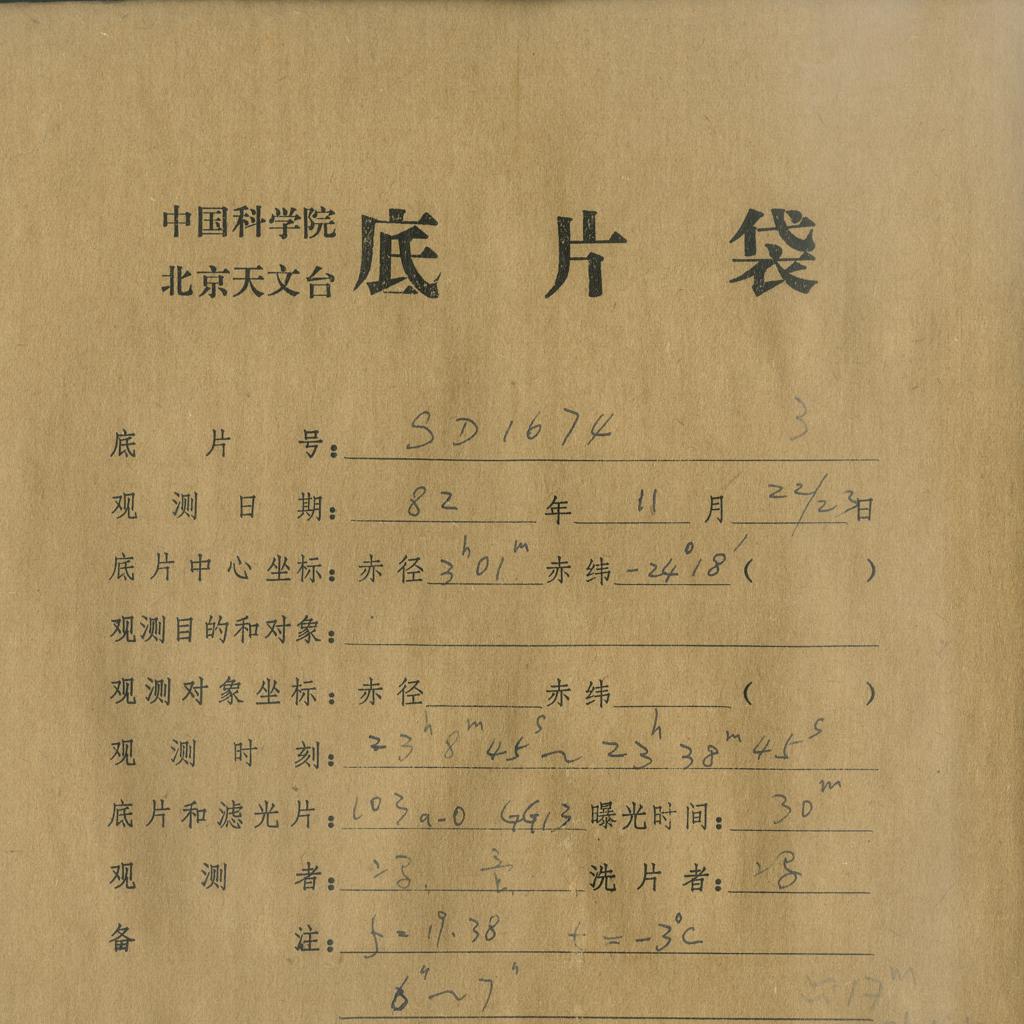 中国科学院
北京天文台
底片袋
底片号: SD1674 3
观测日期: 82 年 11 月 22/23 日
底片中心坐标: 赤径 3h01m 赤纬 -24°18′ ( )
观测目的和对象:
观测对象坐标: 赤径 赤纬 ( )
观测时刻: 23h8m45s~23h38m45s
底片和滤光片: 103a-O GG13 曝光时间: 30m
观测者: 洗片者:
备注: f=19.38 t=-3°C
6"~7" 17m